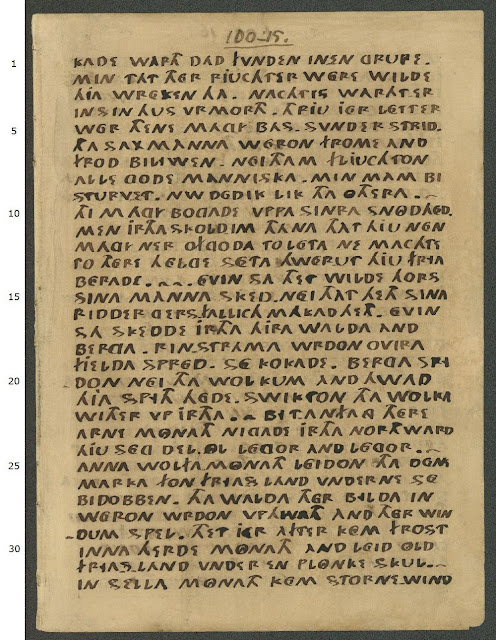 100-15.
1 KADE WARTH DAD FVNDEN INEN GRUPE.
MIN TAT THER RIUCHTER WERE WILDE
HIA WREKEN HA. NACHTIS WARHTER
IN SIN HUS VRMORTH. THRIU IER LETTER
5 WER THENE MAGY BAS. SVNDER STRID.
THA SAXMANNA WERON FROME AND
FROD BILIWEN. NEI THAM FLIUCHTON
ALLE GODE MANNISKA. MIN MAM BI
STURVET. NW DEDIK LIK THA OTHERA.
10 THI MAGY BOGADE VPPA SINRA SNODHED.
MEN IRTHA SKOLDIM THANA THAT HIU NEN
MAGY NER OFGODA TO LETA NE MACHTE
TO THERE HELGE SKETA HWERUT HIU FRIA
BERADE. EVIN SA THET WILDE HORS
15 SINA MANNA SKED. NEI THAT HETH SINA
RIDDER GERS.FALLICH MAKAD HETH. EVIN
SA SKEDDE IRTHA HIRA WALDA AND
BERGA. RIN.STRAMA WRDON OVIRA
FIELDA SPRED. SE KOKADE. BERGA SPI
20 DON NEI THA WOLKUM AND HWAD
HIA SPITH HEDE. SWIKTON THA WOLKA
WITHER VP IRTHA. BI T.ANFANG THERE
ARNE MONATH NIGADE IRTHA NORTHWARD
HIU SEG DEL. OL LEGOR AND LEGOR.
25 ANNA WOLFA MONATH LEIDON THA DENE
MARKA FON FRIAS LAND VNDERNE SE
BIDOBBEN. THA WALDA THER BILDA IN
WERON WRDON VPHIVATH AND THER WIN
DUM SPEL. THET IER AFTER KEM FROST
30 INNA HERDE MONATH AND LEID OLD
FRIAS LAND VNDER EN PLONKE SKUL.
IN SELLA MONATH KEM STORNE WIND